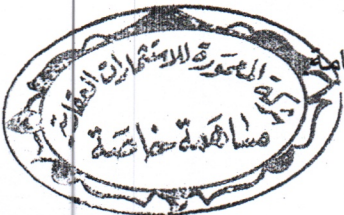 المعمورة للاستثمارات العقارية
مساهمة خاصة